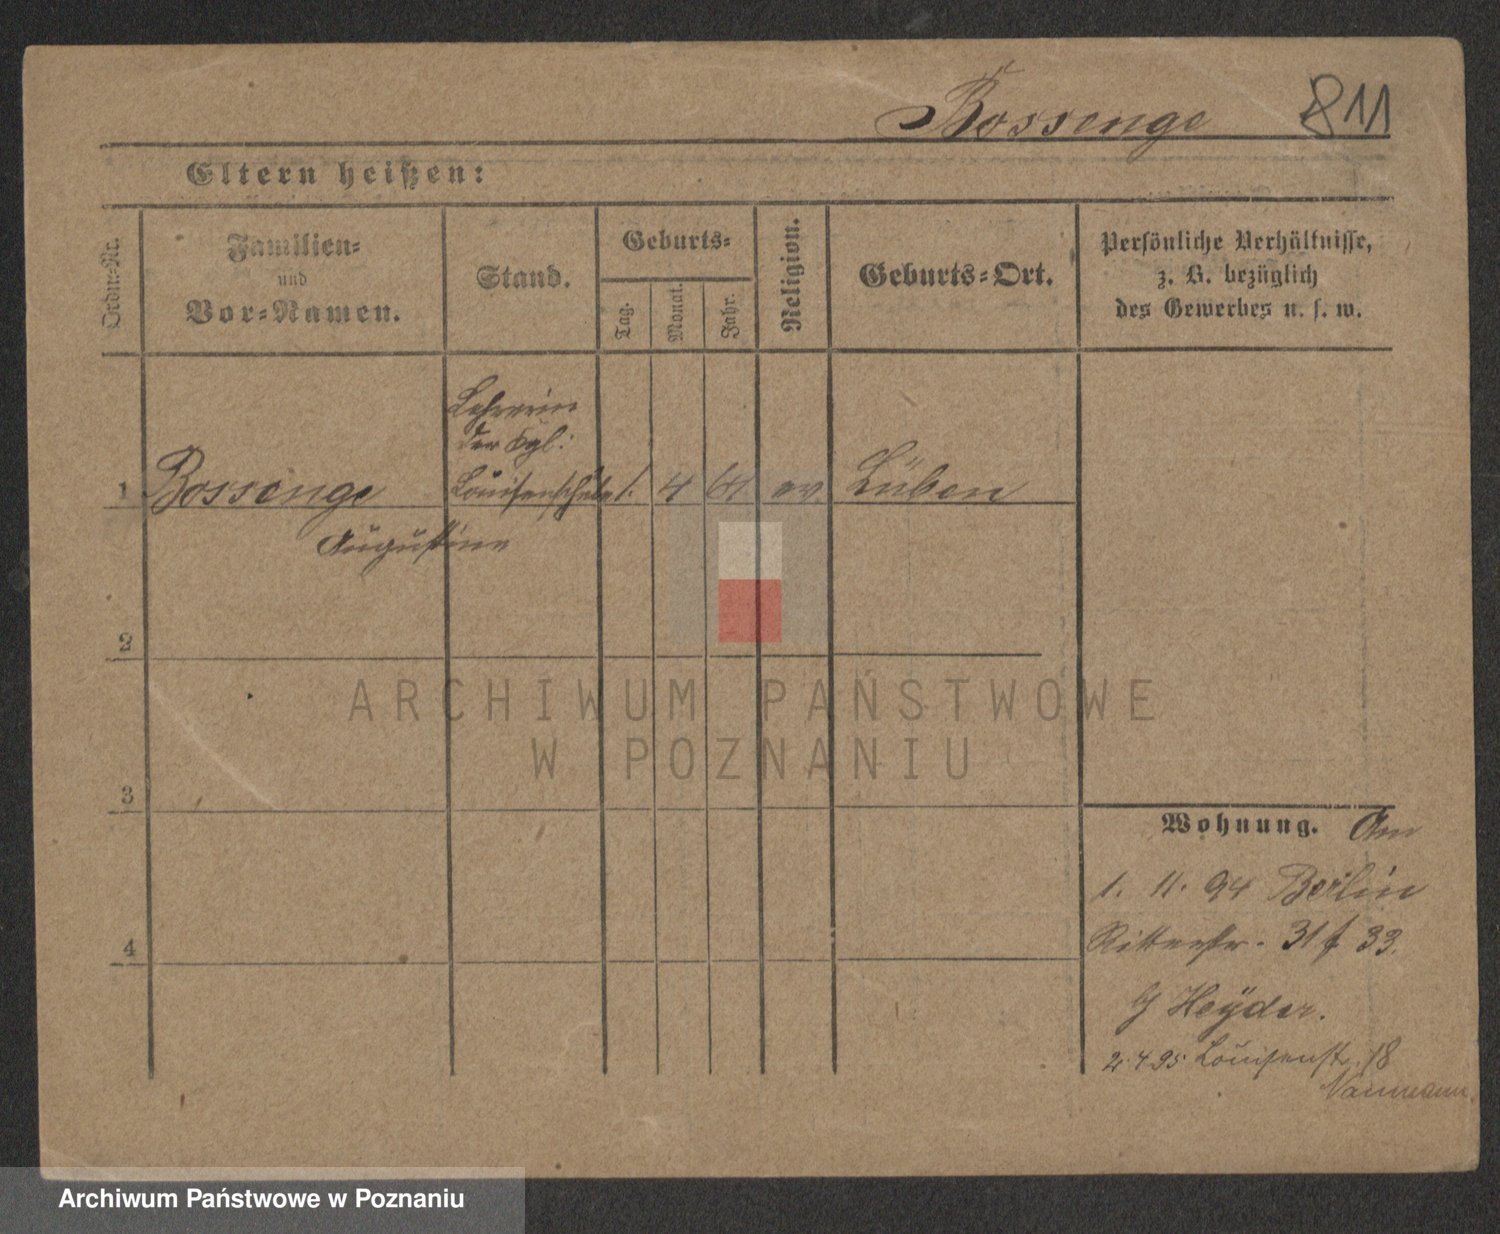 Bossenge 811
Eltern heißen:
Ordn:=Nr.
Familien=
und
Vor=Namen.
Stand.
Geburts=
Tag.
Monat.
Jahr.
Religion.
Geburts=Ort.
Persönliche Verhältnisse,
z. B. bezüglich
des Gewerbes u. s. w.
Lehrerin
der Kgl:
1 Bossenge Louisenschule 1. 4 61 ev Lüben
Augustine
2
3
4
ARCHIWUM PAŃSTWOWE
W POZNANIU
Wohnung. Am
1. 11. 94 Berlin
Ritterstr. 31 f 33.
b/ Heyder.
2.4.95 Louisenstr. 18
Naumann.
Archiwum Państwowe w Poznaniu